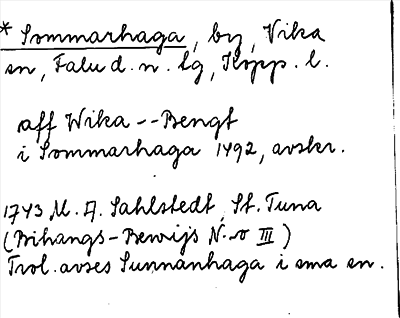 * Sommarhaga, by, Vika
sn, Falu d. n. lg, Kopp. l.
aff Wika -- Bengt
i Sommarhaga 1492, avskr.
1743 M. A. Sahlstedt, St. Tuna
(Bihangs-Bewijs N.o III)
Trol. avses Sunnanhaga i sma sn.